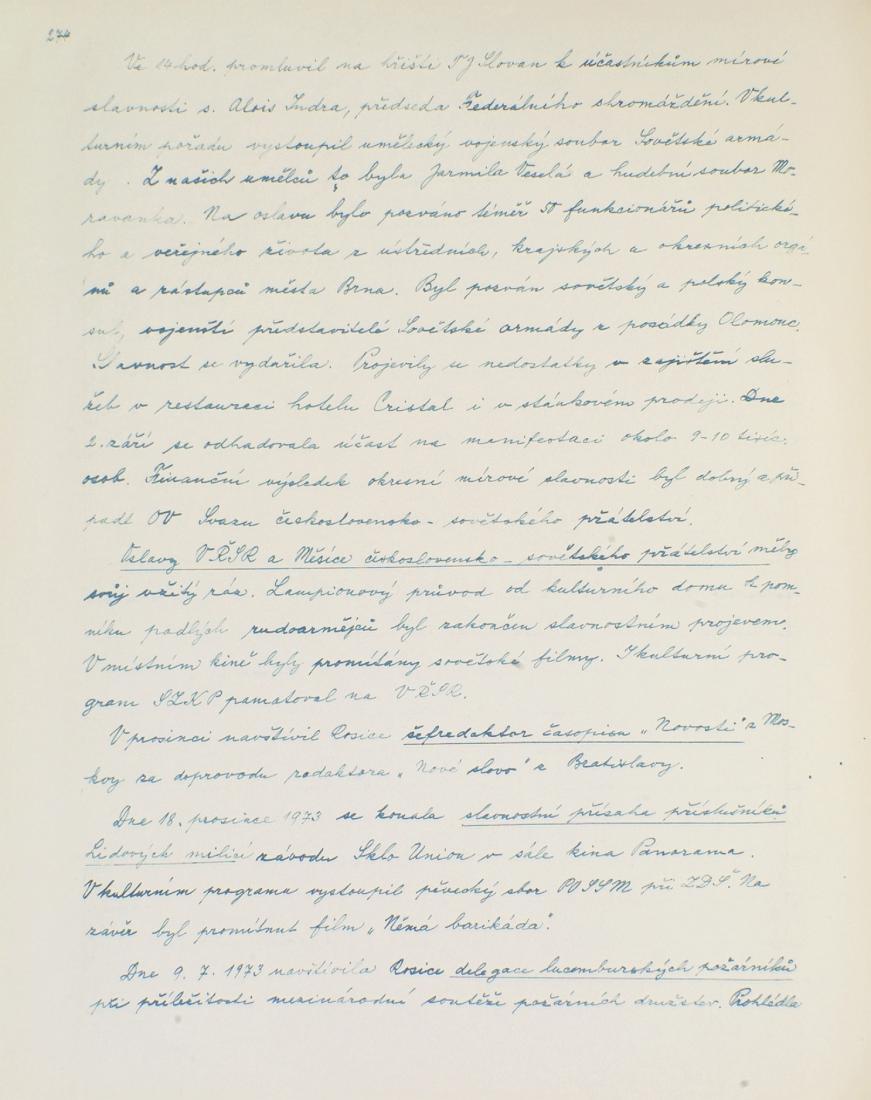 274
Ve 14 hod. promluvil na hřišti TJ Slovan k účastníkům mírové
slavnosti s. Alois Indra, předseda Federálního shromáždění. V kul-
turním pořadu vystoupil umělecký vojenský soubor Sovětské armá-
dy. Z našich umělců to byla Jarmila Veselá a hudební soubor Mo-
ravanka. Na oslavu bylo pozváno téměř 50 funkcionářů politické-
ho a veřejného života z ústředních, krajských a okresních orgá-
nů a zástupců města Brna. Byl pozván sovětský a polský kon-
sul, vojenští představitelé Sovětské armády z posádky Olomouc.
Slavnost se vydařila. Projevily se nedostatky v zajištění slu-
žeb v restauraci hotelu Cristal i v stánkovém prodeji. Dne
2. září se odhadovala účast na manifestaci okolo 9-10 tisíc
osob. Finanční výsledek okresní mírové slavnosti byl dobrý a při-
padl OV Svazu československo-sovětského přátelství.
Oslavy VŘSR a Měsíce československo-sovětského přátelství měly
svůj vžitý ráz. Lampionový průvod od kulturního domu k pom-
níku padlých rudoarmějců byl zakončen slavnostním projevem.
V místním kině byly promítány sovětské filmy. I kulturní pro-
gram SZKP pamatoval na VŘSR.
V prosinci navštívil Rosice šéfredaktor časopisu „Novosti" z Mos-
kvy za doprovodu redaktora „Nové slovo" z Bratislavy.
Dne 18. prosince 1973 se konala slavnostní přísaha příslušníků
Lidových milicí závodu Sklo Union v sále kina Panorama.
V kulturním programu vystoupil pěvecký sbor PO SSM při ZDŠ. Na
závěr byl promítnut film „Němá barikáda".
Dne 9. 7. 1973 navštívila Rosice delegace lucemburských požárníků
při příležitosti mezinárodní soutěže požárních družstev. Prohlédla